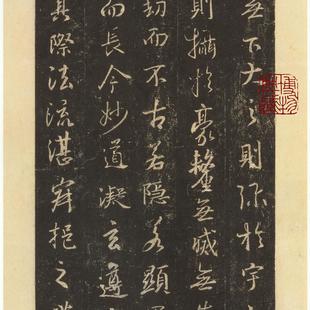 無下大之則弥於宇
則攝於豪釐無滅無
劫而不古若隱若顯
而長今妙道凝玄遵
其際法流湛寂挹之